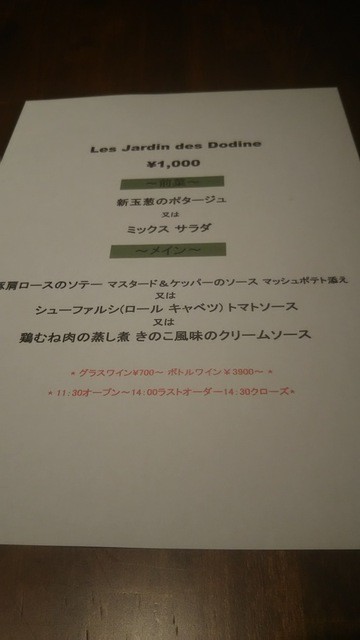 Les Jardin des Dodine
¥1,000
～前菜～
新玉葱のポタージュ
又は
ミックス サラダ
～メイン～
豚肩ロースのソテー マスタード＆ケッパーのソース マッシュポテト添え
又は
シューファルシ(ロール キャベツ) トマトソース
又は
鶏むね肉の蒸し煮 きのこ風味のクリームソース
* グラスワイン¥700～ ボトルワイン￥3900～ *
* 11:30オープン～14:00ラストオーダー14:30クローズ*